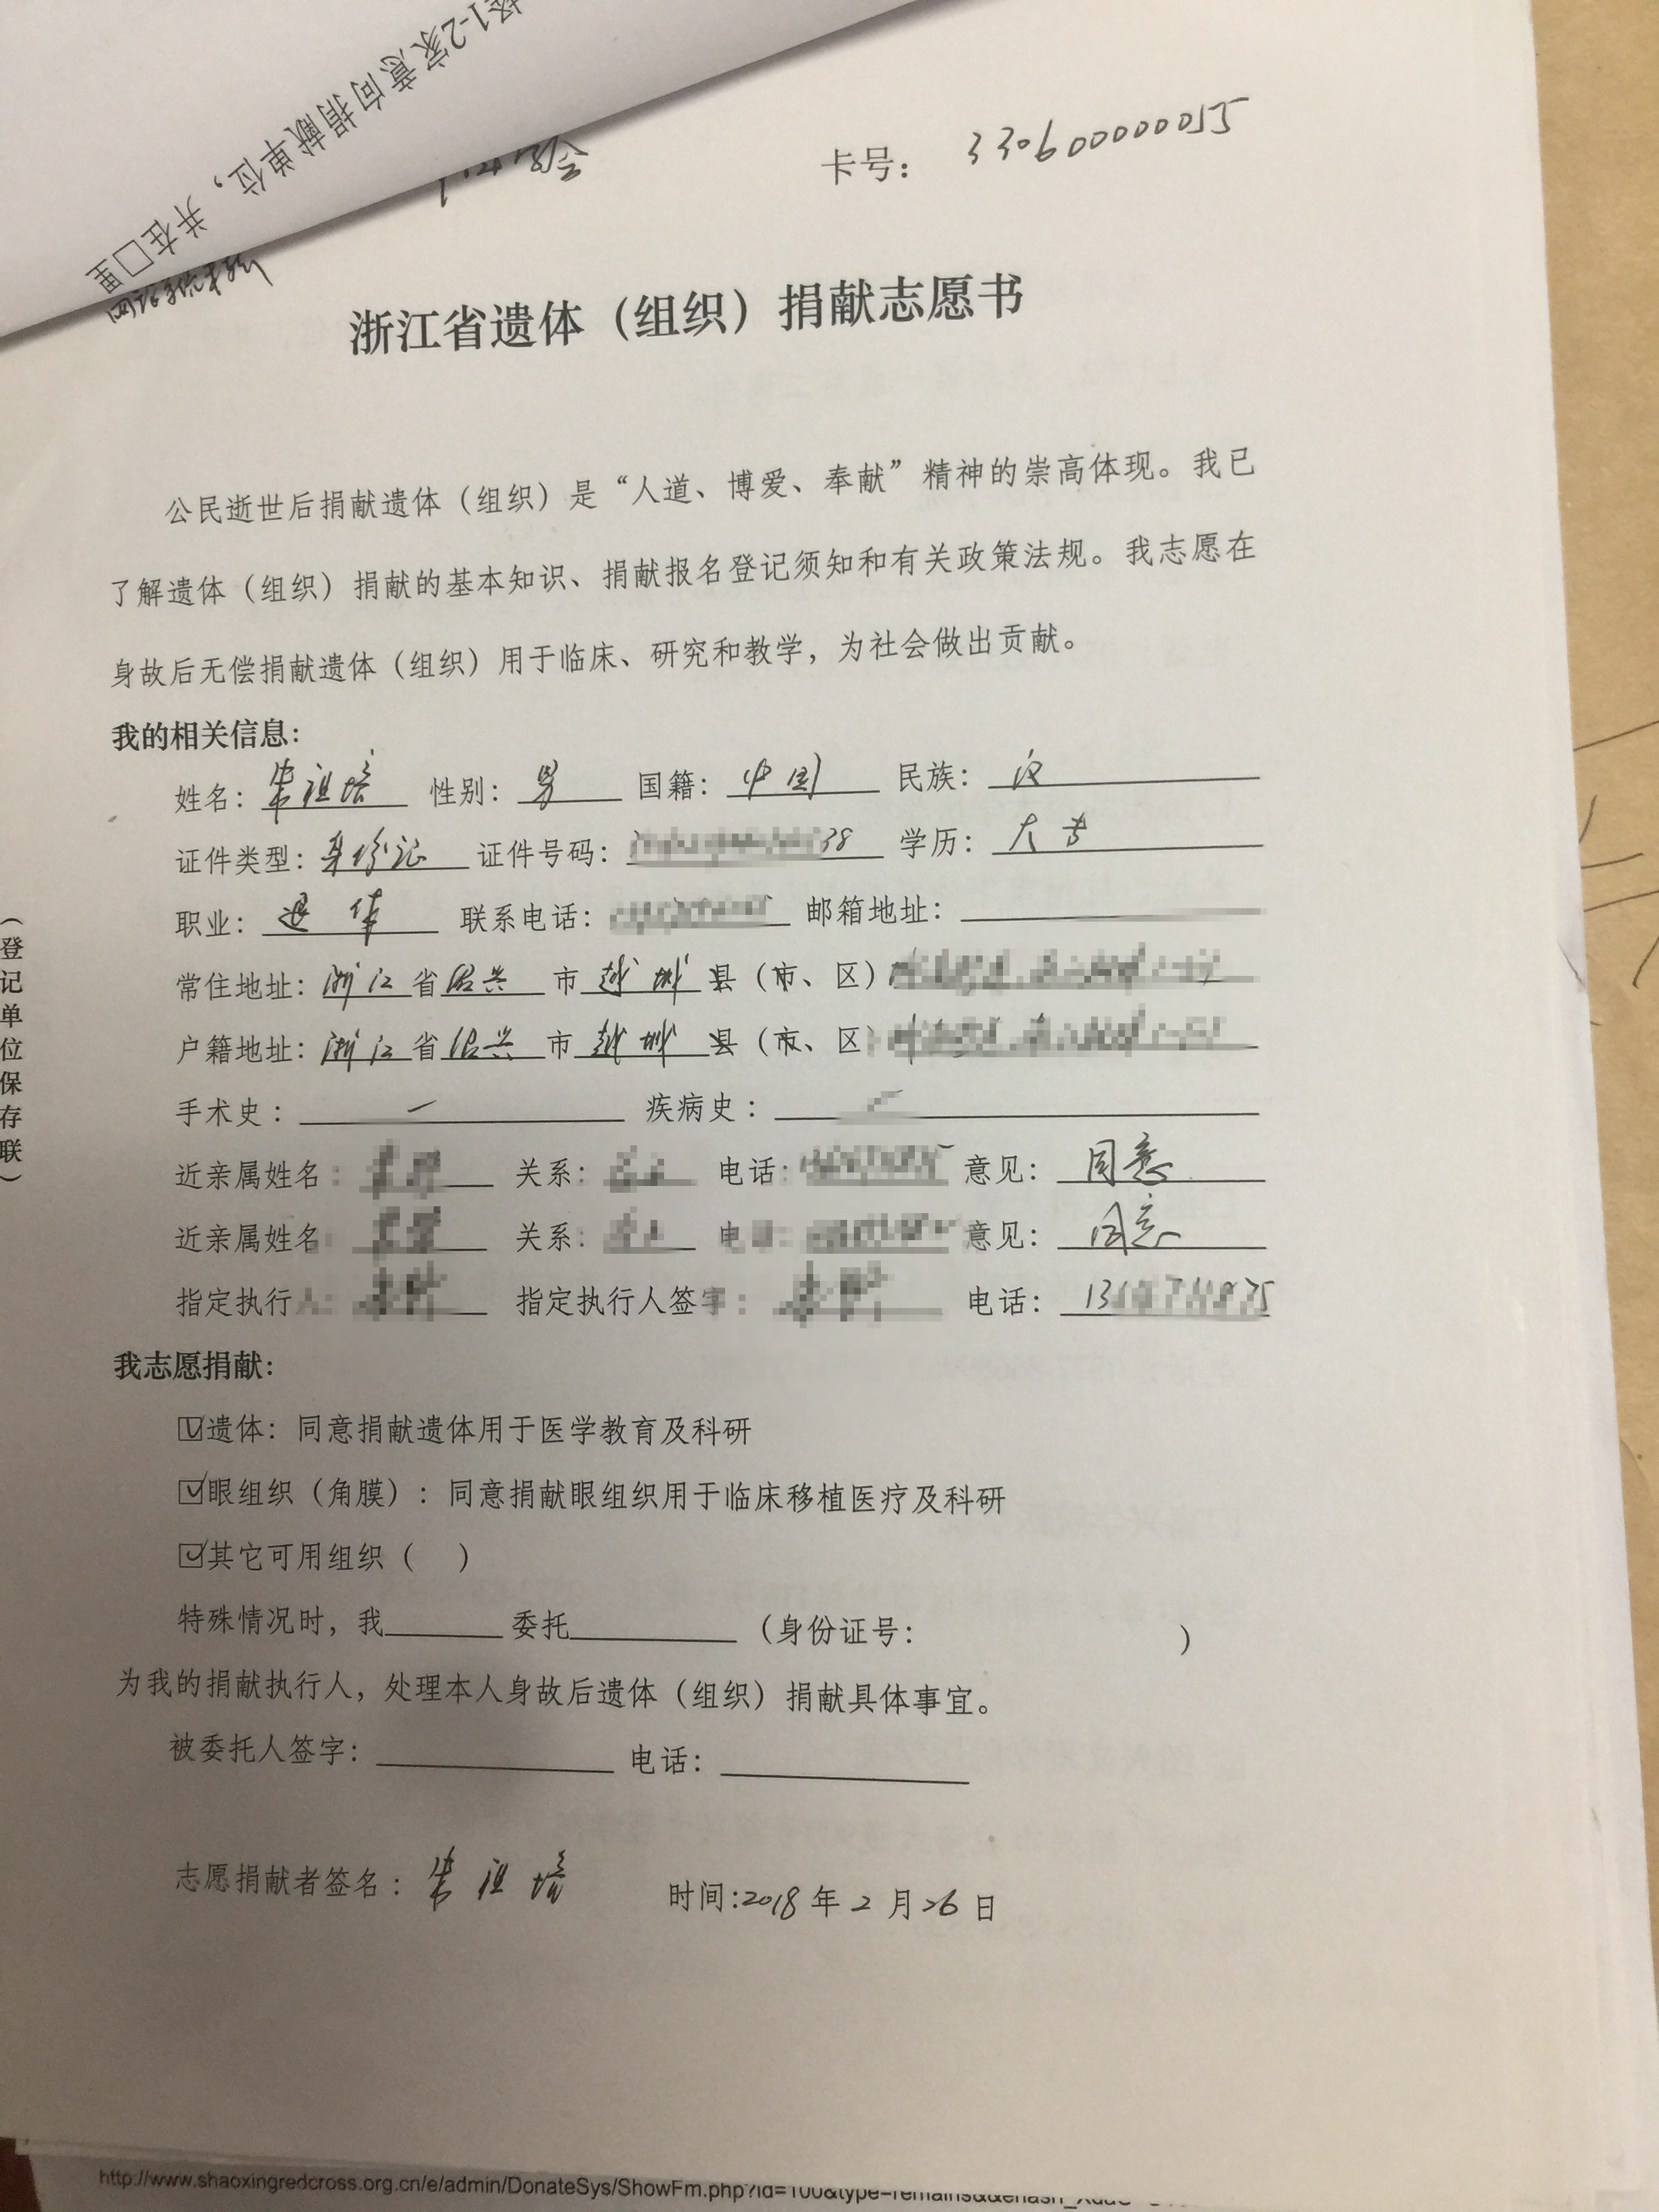 格1-2家意向捐献单位，并在□里
卡号： 330600000055
浙江省遗体（组织）捐献志愿书
公民逝世后捐献遗体（组织）是“人道、博爱、奉献”精神的崇高体现。我已
了解遗体（组织）捐献的基本知识、捐献报名登记须知和有关政策法规。我志愿在
身故后无偿捐献遗体（组织）用于临床、研究和教学，为社会做出贡献。
我的相关信息：
姓名：朱祖培 性别：男 国籍：中国 民族：汉
证件类型：身份证 证件号码： 38 学历：大专
职业：退休 联系电话： 邮箱地址：
常住地址：浙江省绍兴市越城县（市、区）
户籍地址：浙江省绍兴市越城县（市、区）
手术史： 疾病史：
近亲属姓名： 关系： 电话： 意见：同意
近亲属姓名 关系： 意见：同意
指定执行 指定执行人签 电话：
我志愿捐献：
☑遗体：同意捐献遗体用于医学教育及科研
☑眼组织（角膜）：同意捐献眼组织用于临床移植医疗及科研
☑其它可用组织（ ）
特殊情况时，我 委托 （身份证号： ）
为我的捐献执行人，处理本人身故后遗体（组织）捐献具体事宜。
被委托人签字： 电话：
志愿捐献者签名：朱祖培 时间：2018年2月26日
（登记单位保存联）
http://www.shaoxingredcross.org.cn/e/admin/DonateSys/ShowFm.php?id=100&type=remains&